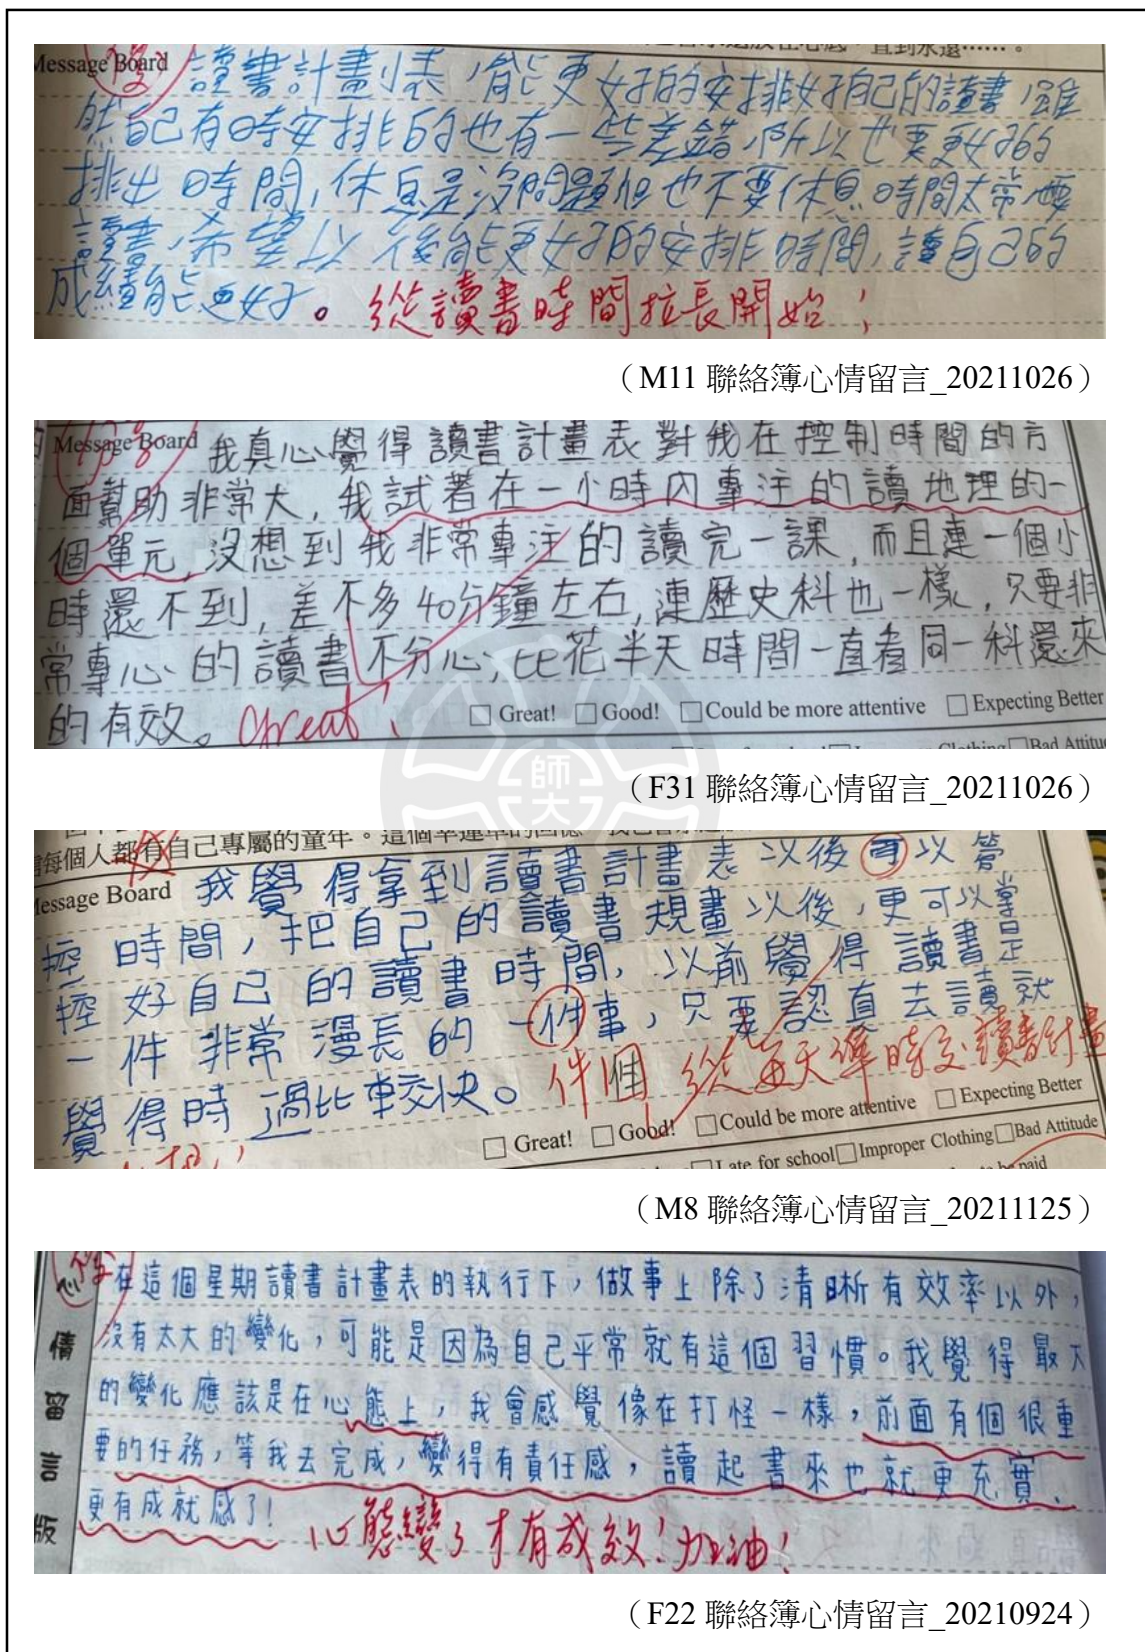 Message Board 讀書計畫表,能更好的安排好自己的讀書,雖
然自己有時安排的也有一些差錯,所以也要更好的
排出時間,休息是沒問題但也不要休息時間太常要
讀書,希望以後能更好的安排時間,讓自己的
成績能更好。從讀書時間拉長開始!
(M11 聯絡簿心情留言_20211026)
Message Board 我真心覺得讀書計畫表對我在控制時間的方
面幫助非常大,我試著在一小時內專注的讀地理的一
個單元,沒想到我非常專注的讀完一課,而且連一個小
時還不到,差不多40分鐘左右,連歷史科也一樣,只要非
常專心的讀書不分心,比花半天時間一直看同一科還來
的有效。Great!
□ Great! □ Good! □ Could be more attentive □ Expecting Better
Clothing □ Bad Attitu
師大
(F31 聯絡簿心情留言_20211026)
每個人都有自己專屬的童年。這個幸運草的回憶
Message Board 我覺得拿到讀書計畫表以後可以管
控時間,把自己的讀書規畫以後,更可以掌
控好自己的讀書時間,以前覺得讀書是
一件非常漫長的一件事,只要認真去讀就
覺得時過比較快。件個 從每天準時交讀書計畫
□ Great! □ Good! □ Could be more attentive □ Expecting Better
□ Late for school □ Improper Clothing □ Bad Attitude
be paid
(M8 聯絡簿心情留言_20211125)
心情留言版
在這個星期讀書計畫表的執行下,做事上除了清晰有效率以外,
沒有太大的變化,可能是因為自己平常就有這個習慣。我覺得最大
的變化應該是在心態上,我會感覺像在打怪一樣,前面有個很重
要的任務,等我去完成,變得有責任感,讀起書來也就更充實、
更有成就感了! 心態變了才有成效!加油!
(F22 聯絡簿心情留言_20210924)